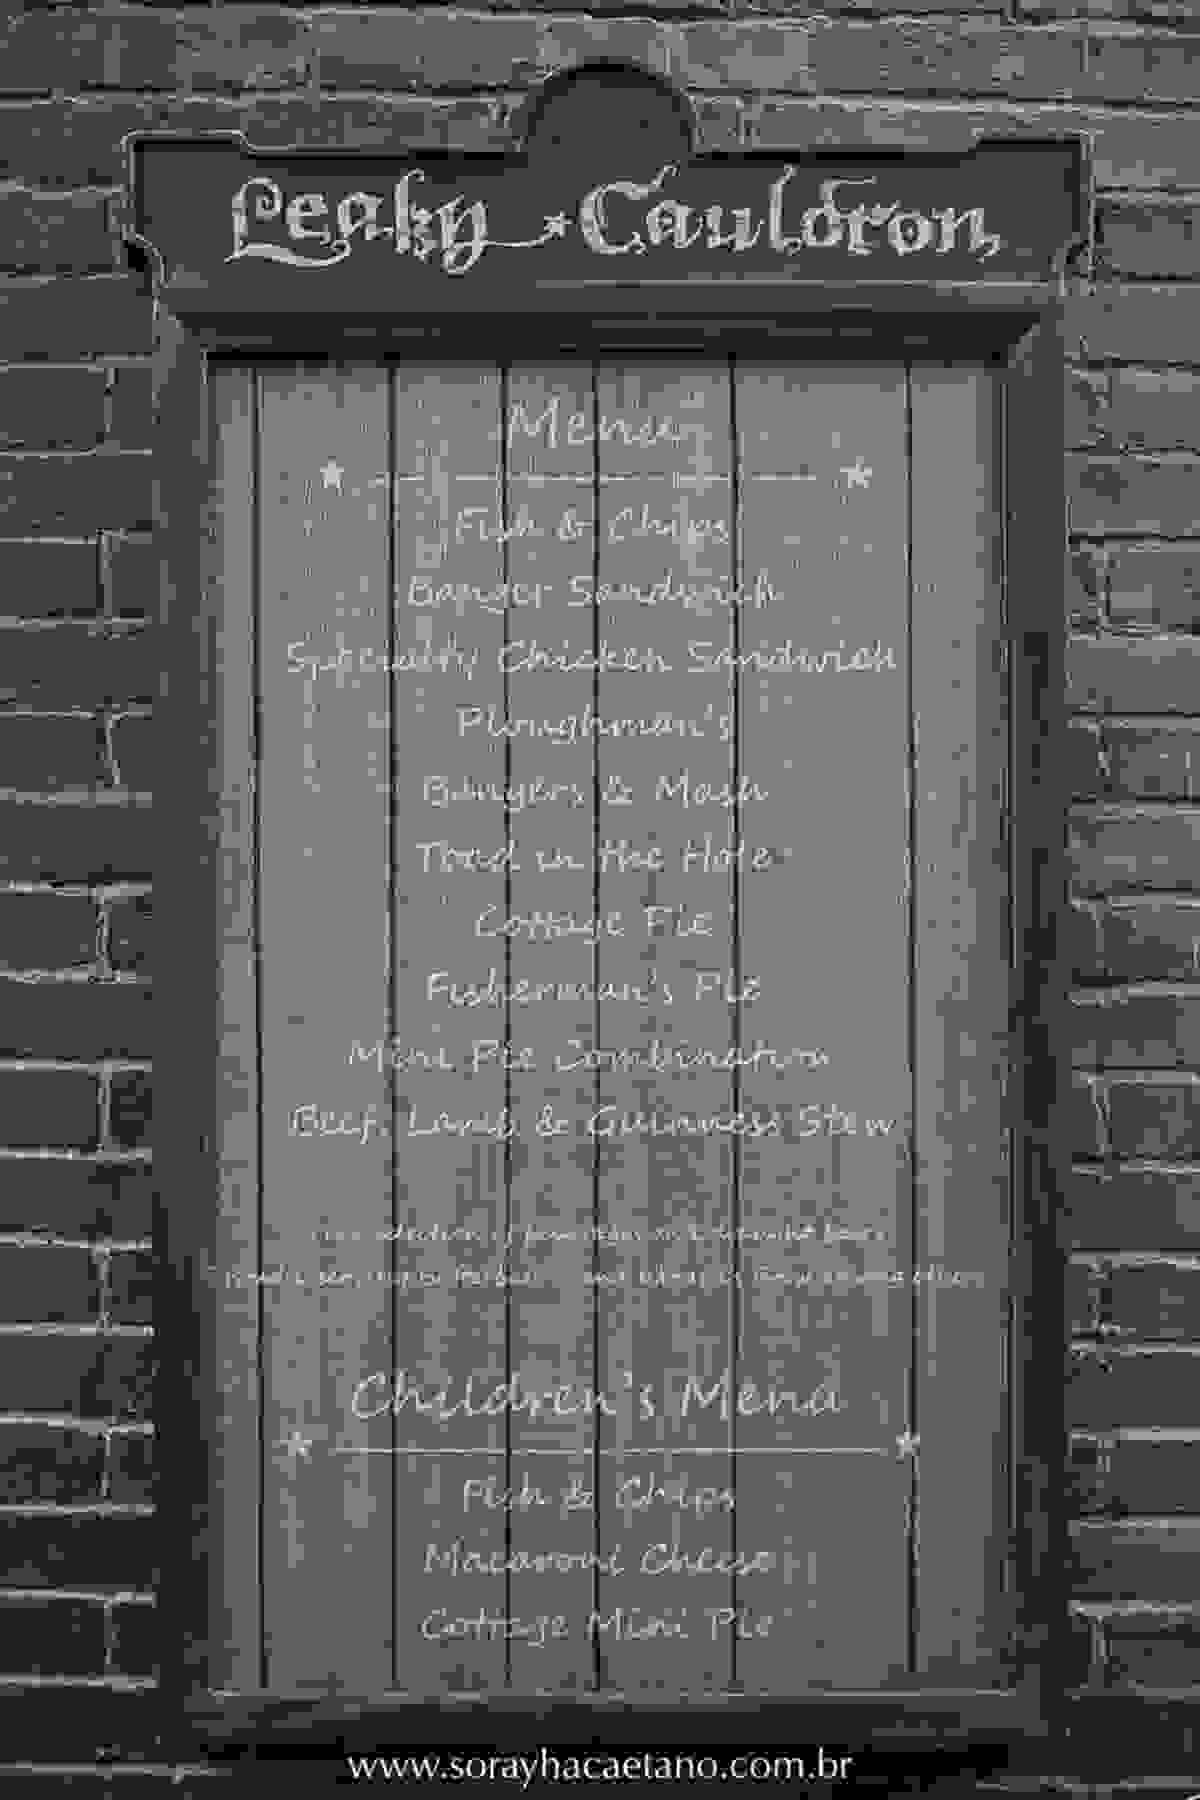 Leaky Cauldron
Menu
Fish & Chips
Banger Sandwich
Specialty Chicken Sandwich
Ploughman's
Bangers & Mash
Toad in the Hole
Cottage Pie
Fisherman's Pie
Mini Pie Combination
Beef, Lamb & Guinness Stew
Children's Menu
Fish & Chips
Macaroni Cheese
Cottage Mini Pie
www.sorayhacaetano.com.br